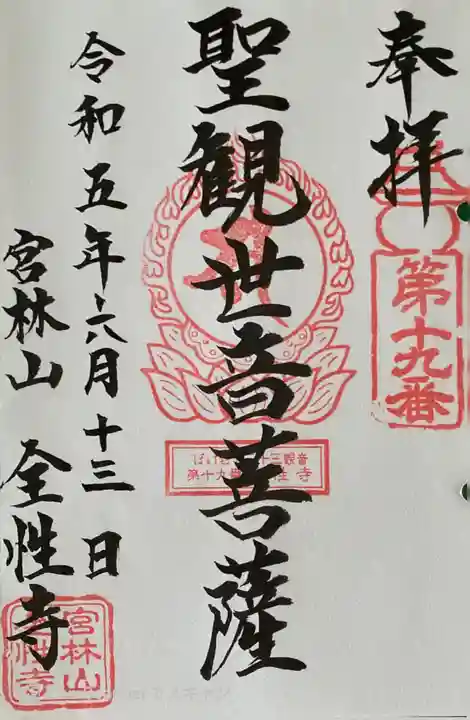 奉拝
第十九番
聖観世音菩薩
三観音
第十九
寺
令和五年六月十三日
宮林山 全性寺
宮林山
性寺